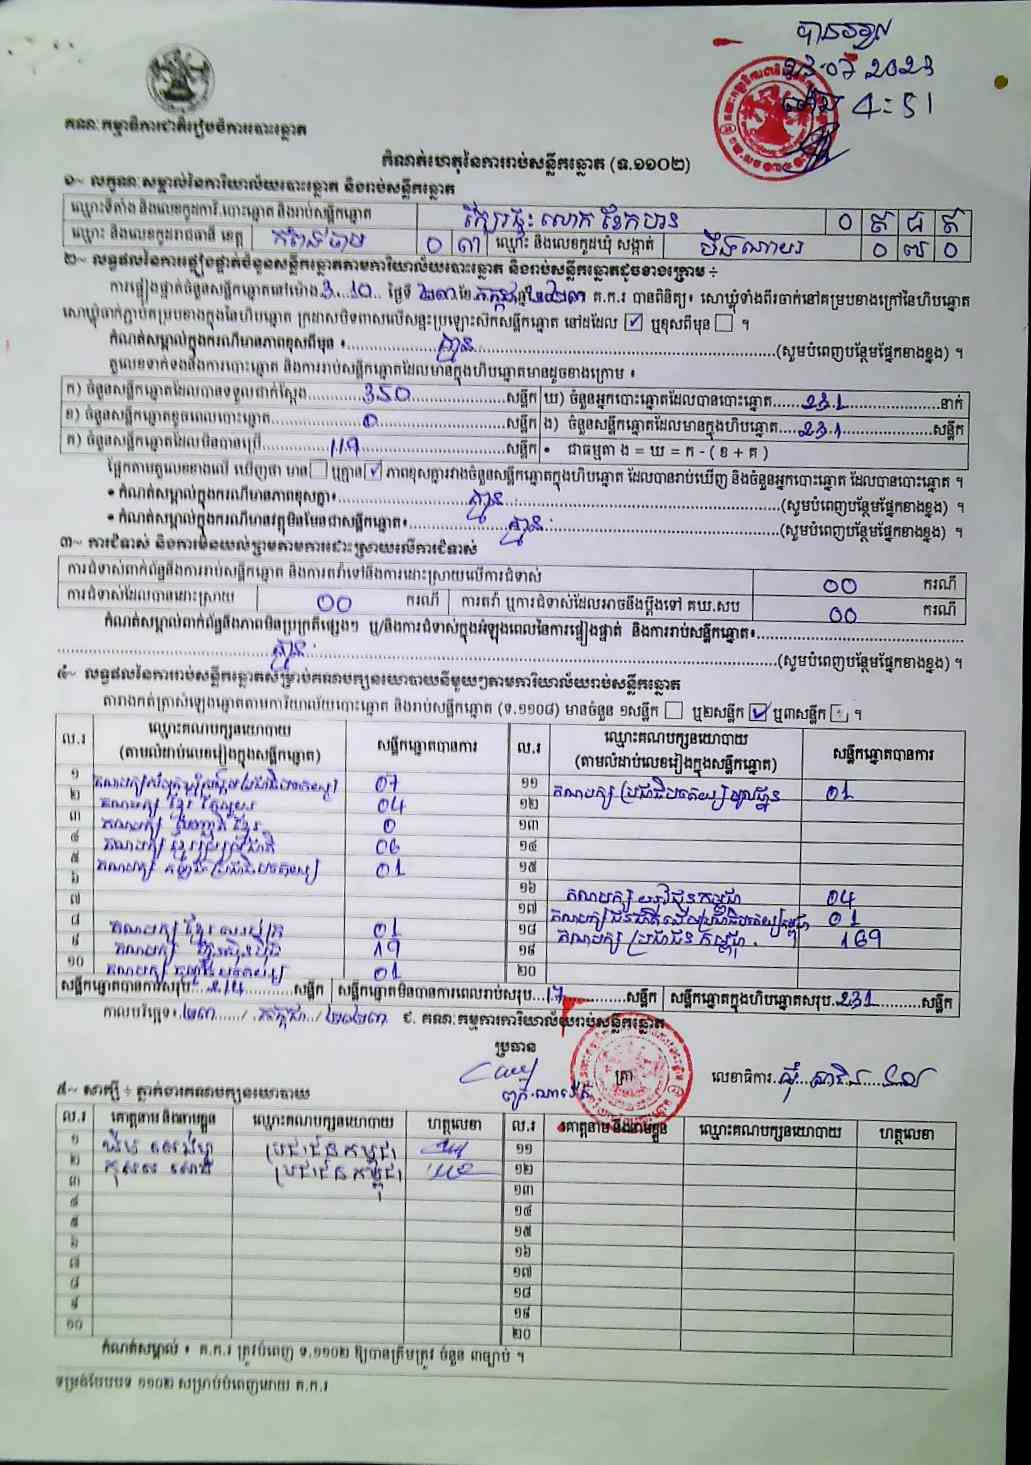 បានទទួល
23.07 2023
ម៉ោង 4:51
គណៈកម្មាធិការជាតិរៀបចំការបោះឆ្នោត
កំណត់ហេតុនៃការរាប់សន្លឹកឆ្នោត (ទ.១១០២)
១~ លក្ខណៈសម្គាល់នៃការិយាល័យបោះឆ្នោត និងរាប់សន្លឹកឆ្នោត
ឈ្មោះទីតាំង និងលេខកូដការិ.បោះឆ្នោត និងរាប់សន្លឹកឆ្នោត ០ ៩ ៨ ៩
ឈ្មោះ និងលេខកូដរាជធានី ខេត្ត កំពង់ចាម ០ ៣ ឈ្មោះ និងលេខកូដឃុំ សង្កាត់ ០ ៧ ០
២~ លទ្ធផលនៃការផ្ទៀងផ្ទាត់ចំនួនសន្លឹកឆ្នោតតាមការិយាល័យបោះឆ្នោត និងរាប់សន្លឹកឆ្នោតដូចខាងក្រោម ÷
ការផ្ទៀងផ្ទាត់ចំនួនសន្លឹកឆ្នោតនៅម៉ោង 3:10 ថ្ងៃទី ២៣ ខែ កក្កដា ឆ្នាំ ២០២៣ គ.ក.រ បានពិនិត្យ៖ សោឃ្លុំទាំងពីរចាក់នៅគម្របខាងក្រៅនៃហិបឆ្នោត
សោឃ្លុំចាក់ភ្ជាប់គម្របខាងក្នុងនៃហិបឆ្នោត ក្រដាសបិទពាសលើសន្ទះប្រឡោះស៊កសន្លឹកឆ្នោត នៅដដែល ☑ ឬខុសពីមុន ☐ ។
កំណត់សម្គាល់ក្នុងករណីមានភាពខុសពីមុន ៖ គ្មាន (សូមបំពេញបន្ថែមផ្នែកខាងខ្នង) ។
តួលេខទាក់ទងនឹងការបោះឆ្នោត និងការរាប់សន្លឹកឆ្នោតដែលមានក្នុងហិបឆ្នោតមានដូចខាងក្រោម ៖
ក) ចំនួនសន្លឹកឆ្នោតដែលបានទទួលជាក់ស្តែង 350 សន្លឹក ឃ) ចំនួនអ្នកបោះឆ្នោតដែលបានបោះឆ្នោត 231 នាក់
ខ) ចំនួនសន្លឹកឆ្នោតខូចពេលបោះឆ្នោត 0 សន្លឹក ង) ចំនួនសន្លឹកឆ្នោតដែលមានក្នុងហិបឆ្នោត 231 សន្លឹក
គ) ចំនួនសន្លឹកឆ្នោតដែលមិនបានប្រើ 119 សន្លឹក • ជាធម្មតា ង = ឃ = ក - ( ខ + គ )
ផ្អែកតាមតួលេខខាងលើ ឃើញថា មាន ☐ ឬគ្មាន ☑ ភាពខុសគ្នារវាងចំនួនសន្លឹកឆ្នោតក្នុងហិបឆ្នោត ដែលបានរាប់ឃើញ និងចំនួនអ្នកបោះឆ្នោត ដែលបានបោះឆ្នោត ។
• កំណត់សម្គាល់ក្នុងករណីមានភាពខុសគ្នា៖ គ្មាន (សូមបំពេញបន្ថែមផ្នែកខាងខ្នង) ។
• កំណត់សម្គាល់ក្នុងករណីមានវត្ថុមិនមែនជាសន្លឹកឆ្នោត៖ គ្មាន (សូមបំពេញបន្ថែមផ្នែកខាងខ្នង) ។
៣~ ការជំទាស់ និងការមិនយល់ព្រមតាមការដោះស្រាយលើការជំទាស់
ការជំទាស់ពាក់ព័ន្ធនឹងការរាប់សន្លឹកឆ្នោត និងការតវ៉ាទៅនឹងការដោះស្រាយលើការជំទាស់ 00 ករណី
ការជំទាស់ដែលបានដោះស្រាយ 00 ករណី ការតវ៉ា ឬការជំទាស់ដែលអាចនឹងប្តឹងទៅ គឃ.សប 00 ករណី
កំណត់សម្គាល់ពាក់ព័ន្ធនឹងភាពមិនប្រក្រតីផ្សេងៗ ឬ/និងការជំទាស់ក្នុងអំឡុងពេលនៃការផ្ទៀងផ្ទាត់ និងការរាប់សន្លឹកឆ្នោត៖
គ្មាន (សូមបំពេញបន្ថែមផ្នែកខាងខ្នង) ។
៤~ លទ្ធផលនៃការរាប់សន្លឹកឆ្នោតសម្រាប់គណបក្សនយោបាយនីមួយៗតាមការិយាល័យរាប់សន្លឹកឆ្នោត
តារាងកត់ត្រាសំឡេងឆ្នោតតាមការិយាល័យបោះឆ្នោត និងរាប់សន្លឹកឆ្នោត (ទ.១១០៨) មានចំនួន ១សន្លឹក ☐ ឬ២សន្លឹក ☑ ឬ៣សន្លឹក ☐ ។
ល.រ ឈ្មោះគណបក្សនយោបាយ (តាមលំដាប់លេខរៀងក្នុងសន្លឹកឆ្នោត) សន្លឹកឆ្នោតបានការ ល.រ ឈ្មោះគណបក្សនយោបាយ (តាមលំដាប់លេខរៀងក្នុងសន្លឹកឆ្នោត) សន្លឹកឆ្នោតបានការ
១ 07 ១១ គណបក្សប្រជាធិបតេយ្យមូលដ្ឋាន 01
២ 04 ១២
៣ 0 ១៣
៤ 06 ១៤
៥ គណបក្ស កម្លាំងប្រជាធិបតេយ្យ 01 ១៥
៦ ១៦ គណបក្ស យុវជនកម្ពុជា 04
៧ ១៧ 01
៨ គណបក្ស ខ្មែរ 01 ១៨ គណបក្ស ប្រជាជនកម្ពុជា 169
៩ គណបក្ស ហ៊្វុនស៊ិនប៉ិច 19 ១៩
១០ 01 ២០
សន្លឹកឆ្នោតបានការសរុប 214 សន្លឹក សន្លឹកឆ្នោតមិនបានការពេលរាប់សរុប 17 សន្លឹក សន្លឹកឆ្នោតក្នុងហិបឆ្នោតសរុប 231 សន្លឹក
កាលបរិច្ឆេទ៖ ២៣ / កក្កដា / ២០២៣ ៩. គណៈកម្មការការិយាល័យរាប់សន្លឹកឆ្នោត
ប្រធាន
ត្រា
លេខាធិការ
៥~ សាក្សី ÷ ភ្នាក់ងារគណបក្សនយោបាយ
ល.រ គោត្តនាម និងនាមខ្លួន ឈ្មោះគណបក្សនយោបាយ ហត្ថលេខា ល.រ គោត្តនាម និងនាមខ្លួន ឈ្មោះគណបក្សនយោបាយ ហត្ថលេខា
១ ប្រជាជនកម្ពុជា ១១
២ ប្រជាជនកម្ពុជា ១២
៣ ១៣
៤ ១៤
៥ ១៥
៦ ១៦
៧ ១៧
៨ ១៨
៩ ១៩
១០ ២០
កំណត់សម្គាល់ ៖ គ.ក.រ ត្រូវបំពេញ ទ.១១០២ ឱ្យបានត្រឹមត្រូវ ចំនួន ៣ច្បាប់ ។
ទម្រង់បែបបទ ១១០២ សម្រាប់បំពេញដោយ គ.ក.រ